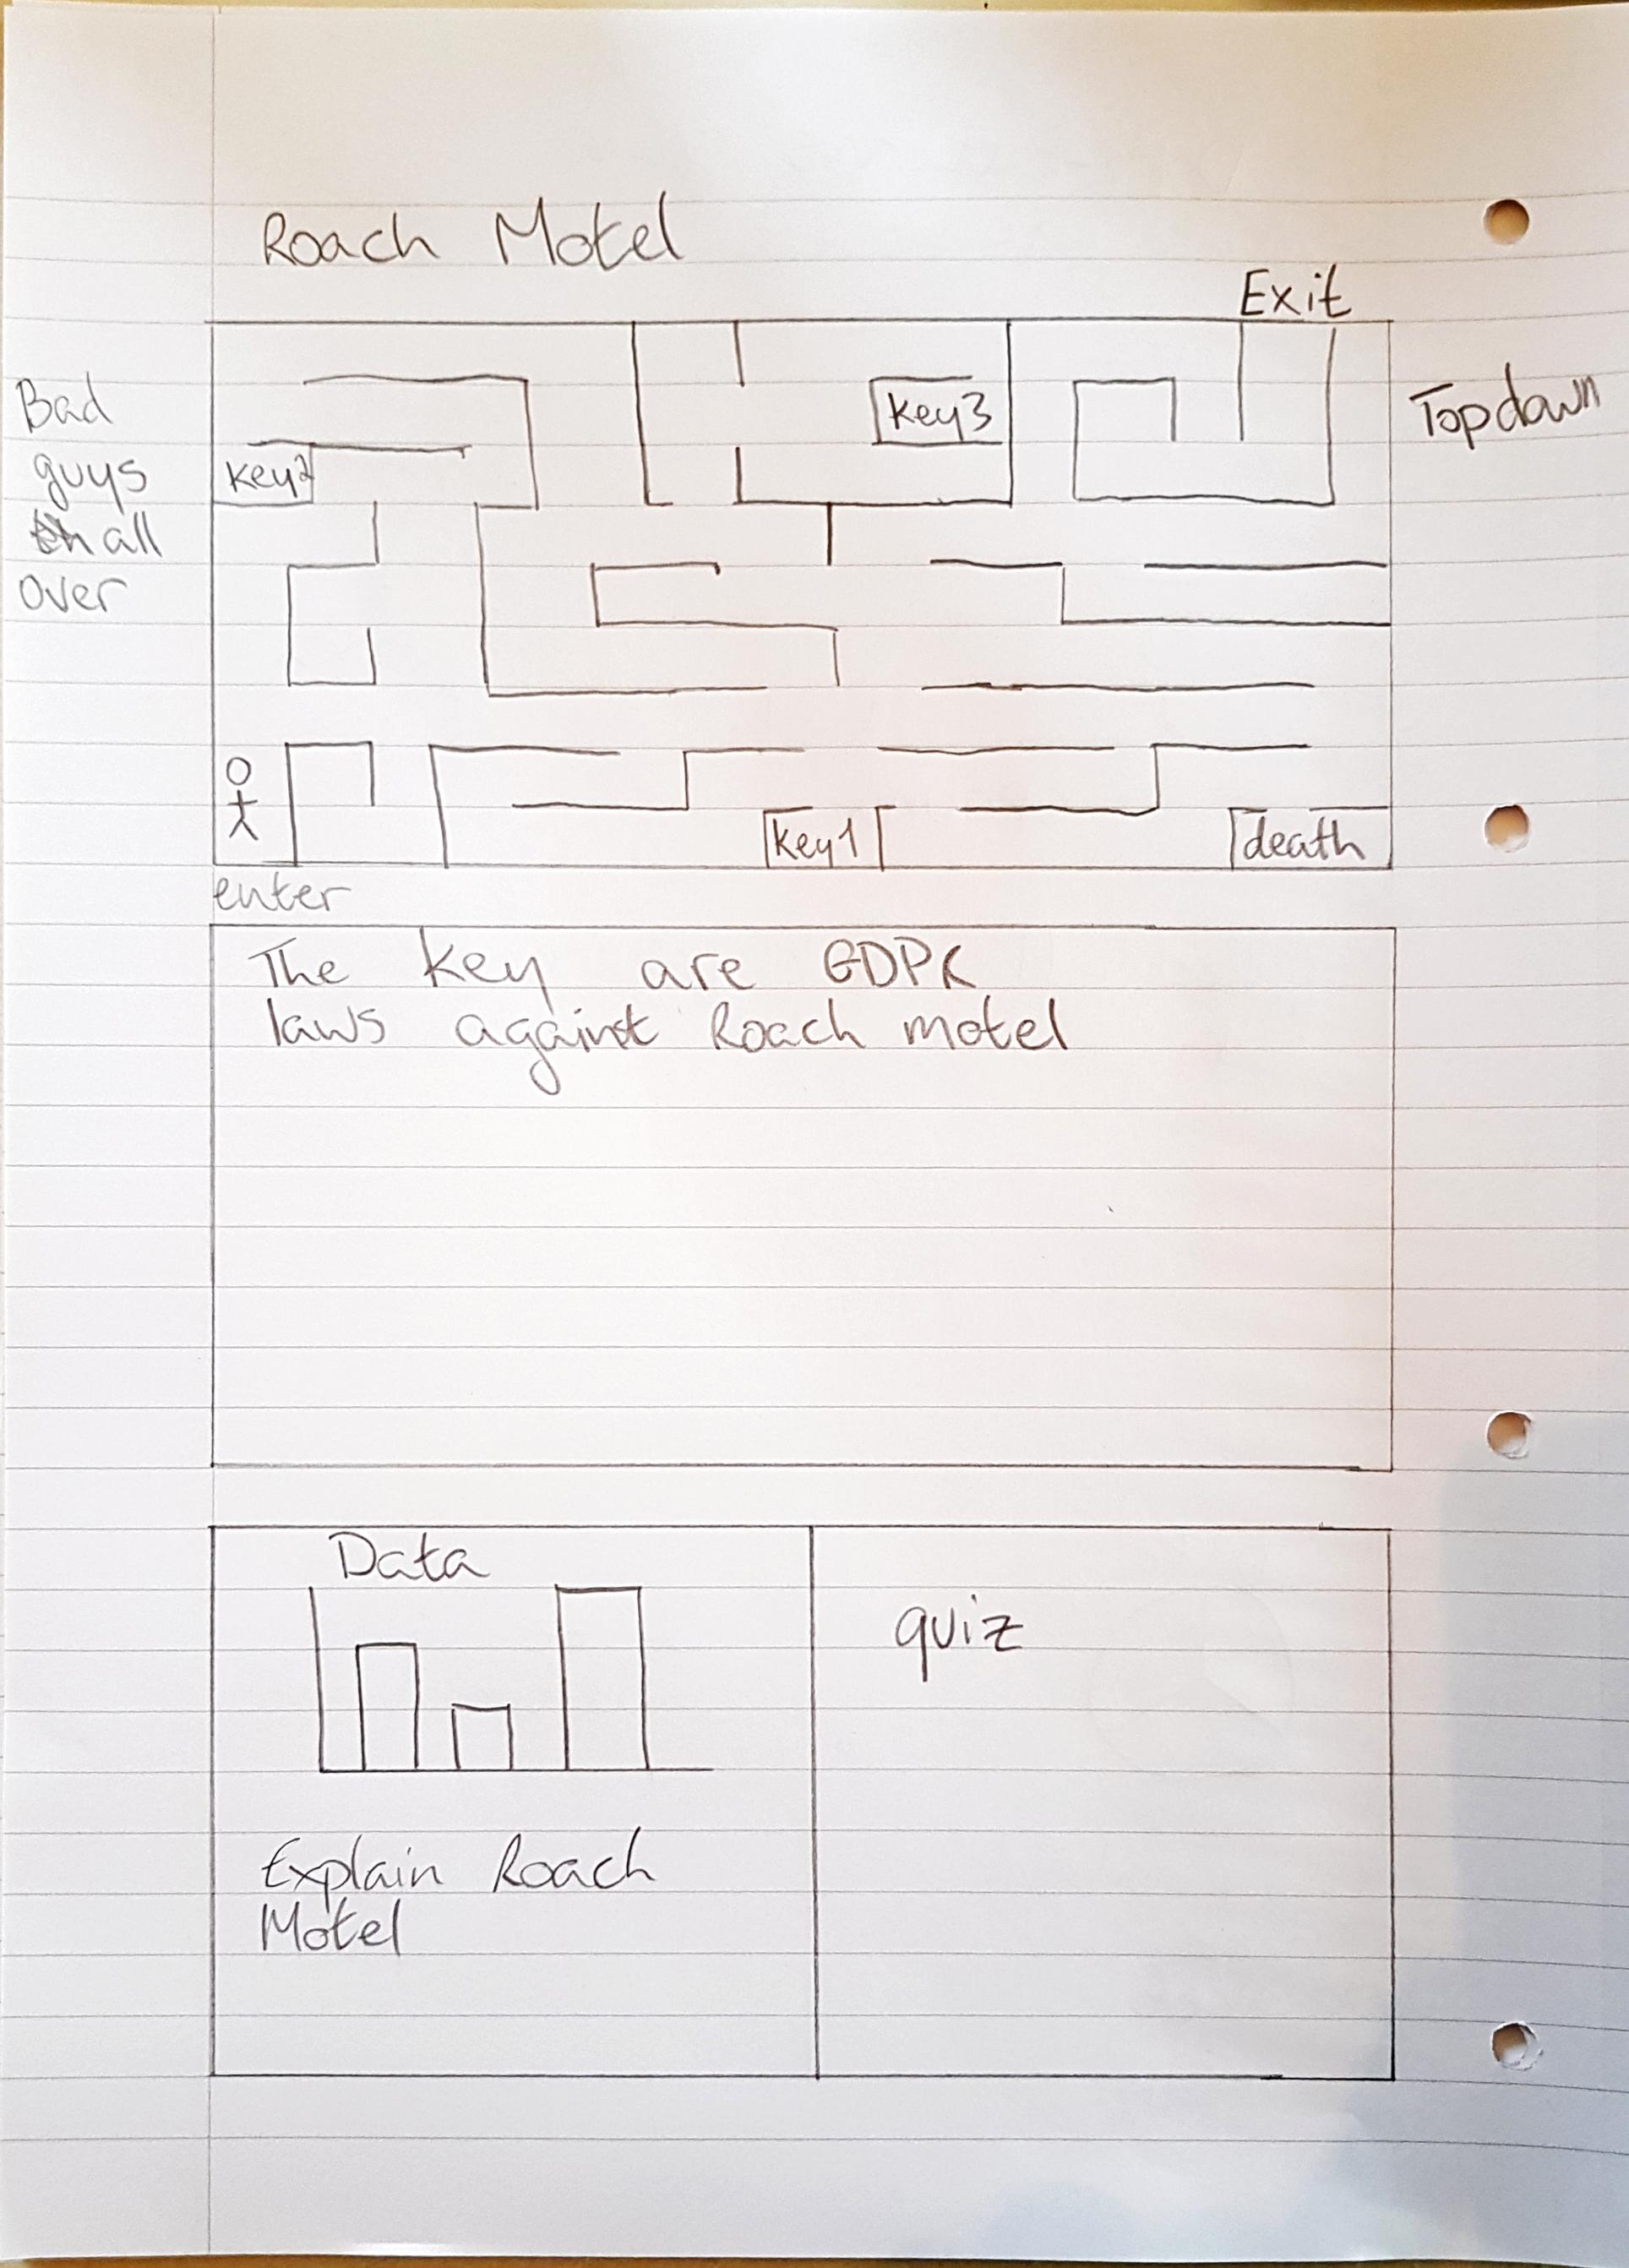 Roach Motel
Exit
Bad
guys
all
over
Top down
key3
key2
key1
death
enter
The key are GDPR
laws against Roach motel
Data
quiz
Explain Roach
Motel